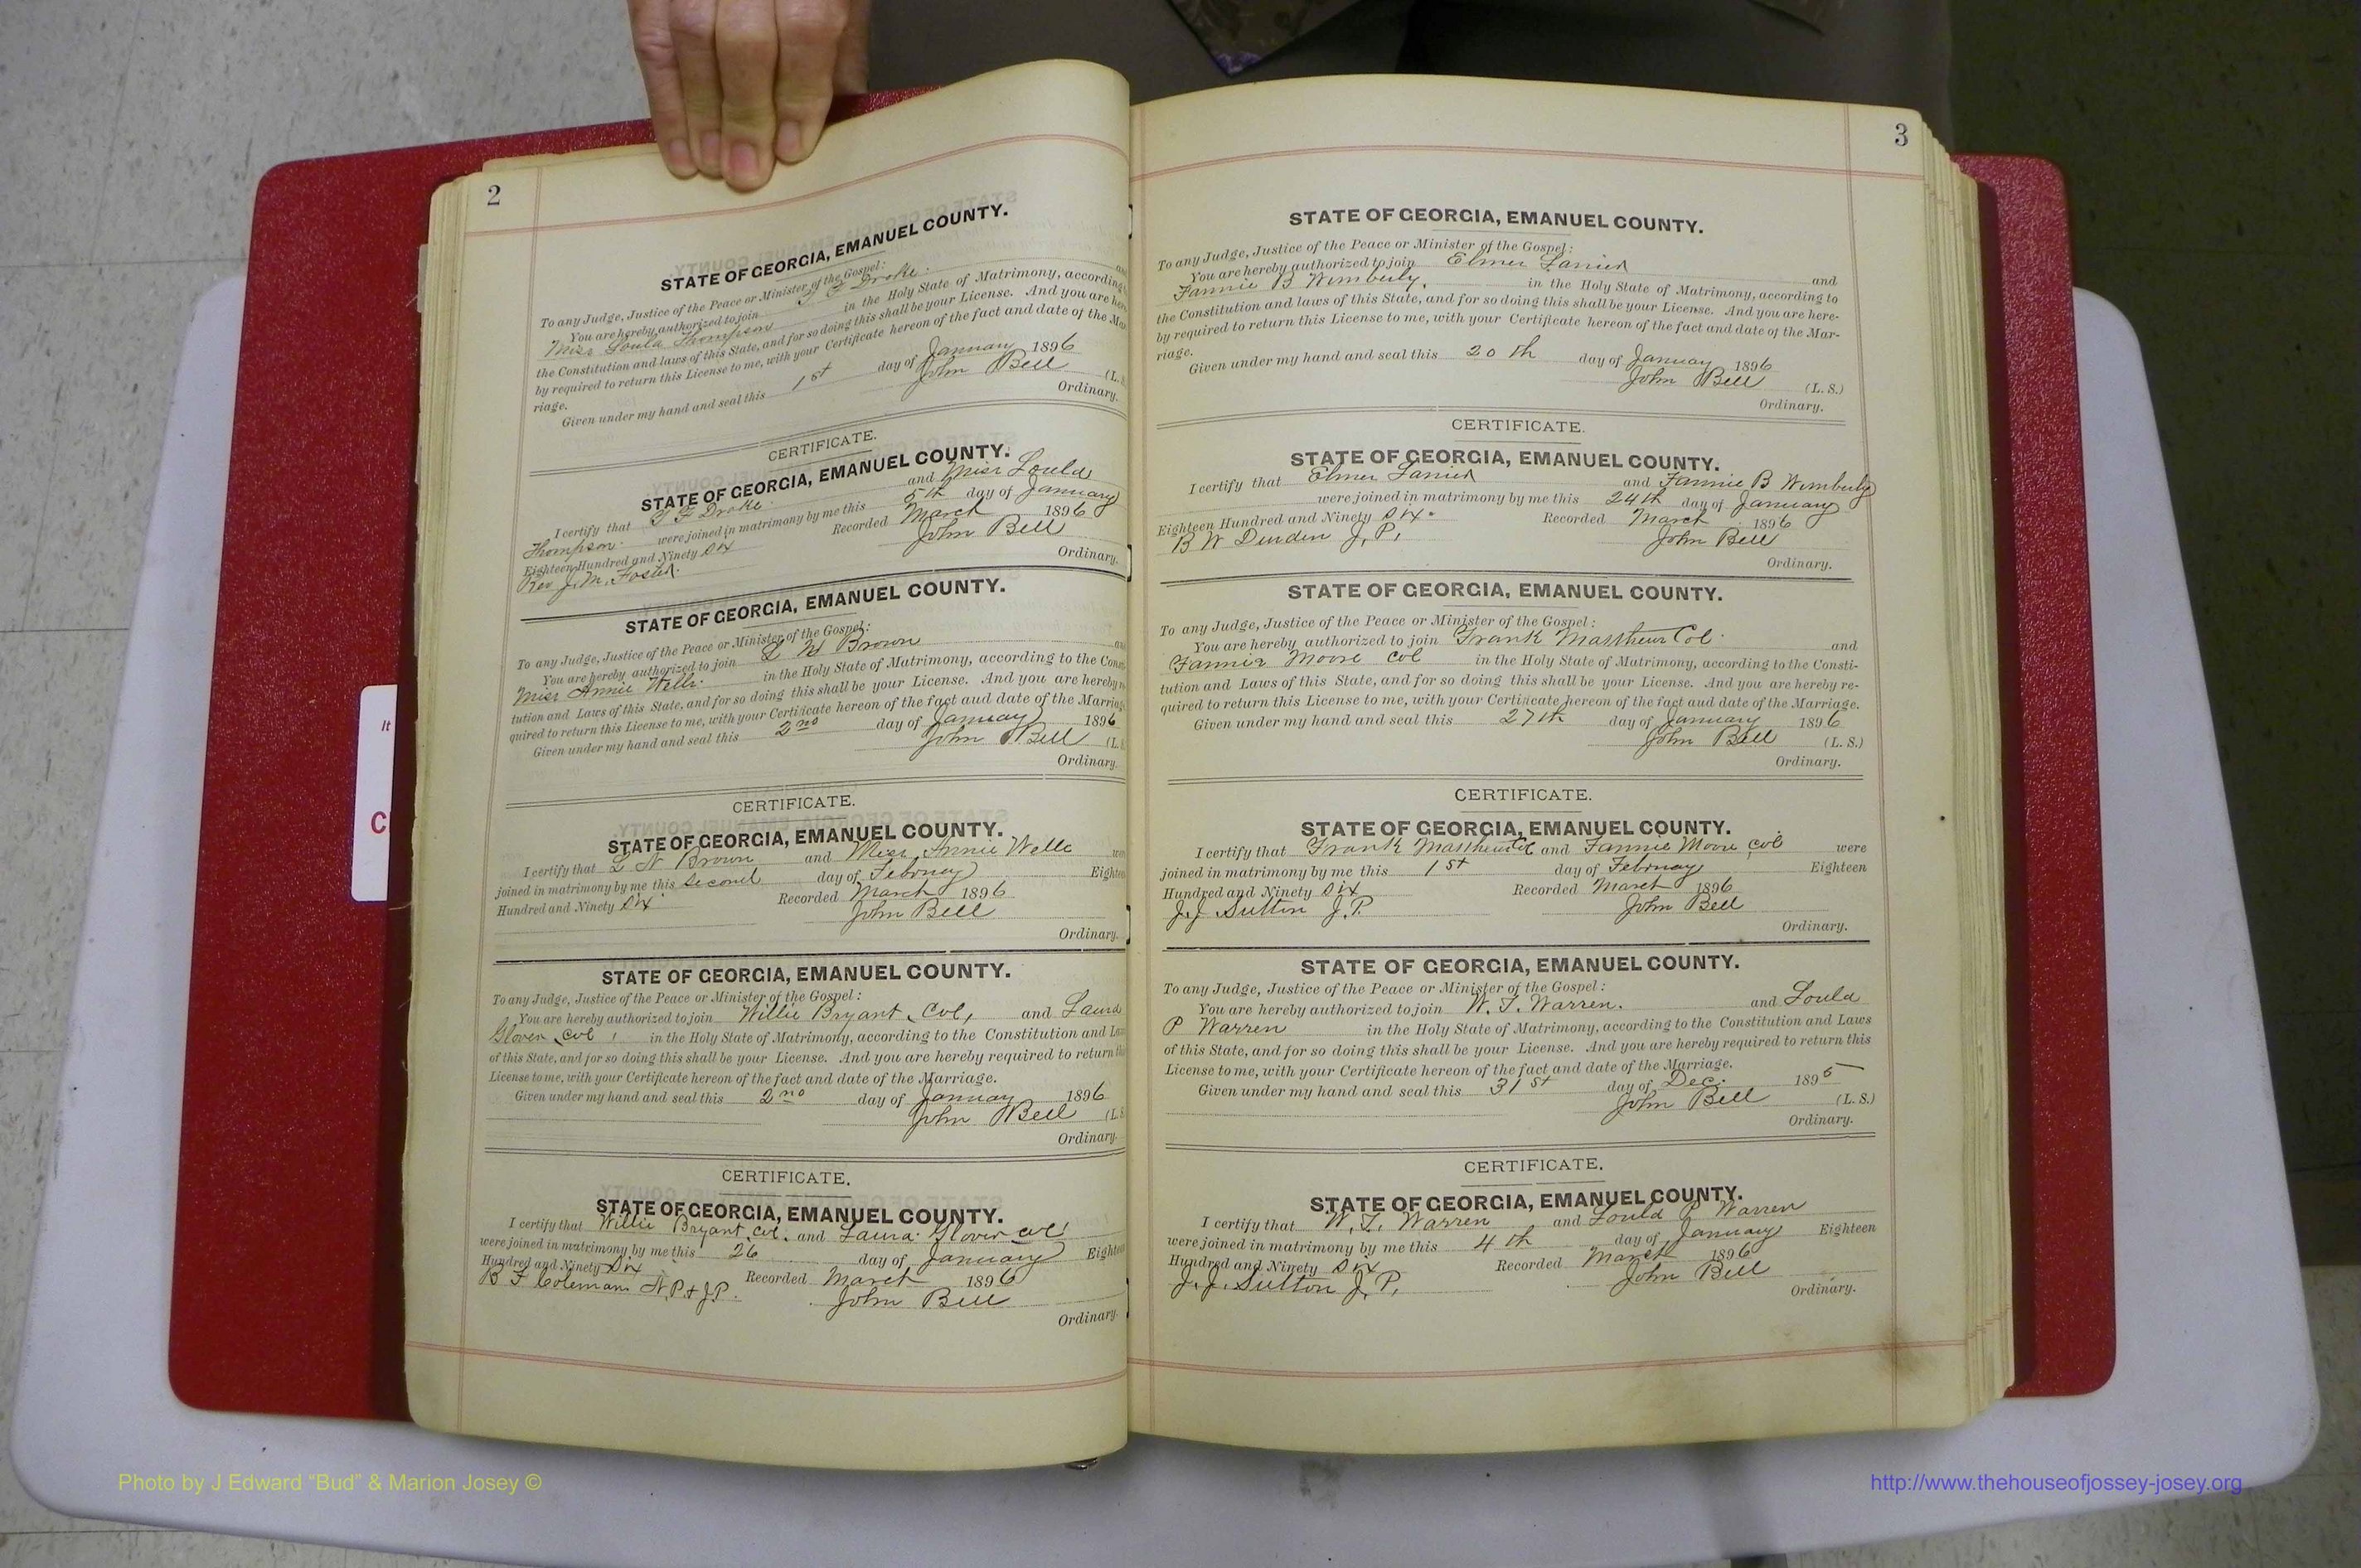 2
STATE OF GEORGIA, EMANUEL COUNTY.
To any Judge, Justice of the Peace or Minister of the Gospel:
You are hereby authorized to join F Drake.
Miss Loula Thompson in the Holy State of Matrimony, according
the Constitution and laws of this State, and for so doing this shall be your License. And you are
by required to return this License to me, with your Certificate hereon of the fact and date of the
riage.
Given under my hand and seal this 1st day of January 1896
John Bell (L.
Ordinary.
CERTIFICATE.
STATE OF GEORGIA, EMANUEL COUNTY.
I certify that F Drake. and Miss Loula
Thompson. were joined in matrimony by me this 5th day of January
Eighteen Hundred and Ninety Six Recorded March 1896
Rev J. M. Foster. John Bell
Ordinary.
STATE OF GEORGIA, EMANUEL COUNTY.
To any Judge, Justice of the Peace or Minister of the Gospel:
You are hereby authorized to join L N Brown
Miss Annie Wells. in the Holy State of Matrimony, according to the
tution and Laws of this State, and for so doing this shall be your License. And you are hereby
quired to return this License to me, with your Certificate hereon of the fact aud date of the
Given under my hand and seal this 2nd day of January 1896
John Bell (L.
Ordinary.
CERTIFICATE.
STATE OF GEORGIA, EMANUEL COUNTY.
I certify that L N Brown and Miss Annie Wells
joined in matrimony by me this second day of Februay
Hundred and Ninety Six Recorded March 1896
John Bell
Ordinary.
STATE OF GEORGIA, EMANUEL COUNTY.
To any Judge, Justice of the Peace or Minister of the Gospel:
You are hereby authorized to join Willie Bryant, Col, and Laura
Glover, col, in the Holy State of Matrimony, according to the Constitution and
of this State, and for so doing this shall be your License. And you are hereby required to return
License to me, with your Certificate hereon of the fact and date of the Marriage.
Given under my hand and seal this 2nd day of January 1896
John Bell
Ordinary.
CERTIFICATE.
STATE OF GEORGIA, EMANUEL COUNTY.
I certify that Willie Bryant, Col. and Laura Glover col
were joined in matrimony by me this 26 day of January
Hundred and Ninety Six Recorded March 1896
B F Coleman N.P. & J.P. John Bell
Ordinary.
3
STATE OF GEORGIA, EMANUEL COUNTY.
To any Judge, Justice of the Peace or Minister of the Gospel:
You are hereby authorized to join Elmer Lanier and
Fannie B Wimberly, in the Holy State of Matrimony, according to
the Constitution and laws of this State, and for so doing this shall be your License. And you are here-
by required to return this License to me, with your Certificate hereon of the fact and date of the Mar-
riage.
Given under my hand and seal this 20th day of January 1896
John Bell (L. S.)
Ordinary.
CERTIFICATE.
STATE OF GEORGIA, EMANUEL COUNTY.
I certify that Elmer Lanier and Fannie B Wimberly
were joined in matrimony by me this 24th day of January
Eighteen Hundred and Ninety Six. Recorded March 1896
B W Durden J, P, John Bell
Ordinary.
STATE OF GEORGIA, EMANUEL COUNTY.
To any Judge, Justice of the Peace or Minister of the Gospel:
You are hereby authorized to join Frank Matthews Col. and
Fannie Moore col in the Holy State of Matrimony, according to the Consti-
tution and Laws of this State, and for so doing this shall be your License. And you are hereby re-
quired to return this License to me, with your Certificate hereon of the fact aud date of the Marriage.
Given under my hand and seal this 27th day of January 1896
John Bell (L. S.)
Ordinary.
CERTIFICATE.
STATE OF GEORGIA, EMANUEL COUNTY.
I certify that Frank Matthews Col and Fannie Moore col were
joined in matrimony by me this 1st day of Februay Eighteen
Hundred and Ninety Six Recorded March 1896
J. J Sutton J. P. John Bell
Ordinary.
STATE OF GEORGIA, EMANUEL COUNTY.
To any Judge, Justice of the Peace or Minister of the Gospel:
You are hereby authorized to join W. T. Warren. and Loula
P Warren in the Holy State of Matrimony, according to the Constitution and Laws
of this State, and for so doing this shall be your License. And you are hereby required to return this
License to me, with your Certificate hereon of the fact and date of the Marriage.
Given under my hand and seal this 31st day of Dec. 1895
John Bell (L. S.)
Ordinary.
CERTIFICATE.
STATE OF GEORGIA, EMANUEL COUNTY.
I certify that W. T. Warren and Loula P Warren
were joined in matrimony by me this 4th day of January Eighteen
Hundred and Ninety Six Recorded March 1896
J. J. Sutton J, P, John Bell
Ordinary.
It
C
Photo by J Edward “Bud” & Marion Josey ©
http://www.thehouseofjossey-josey.org